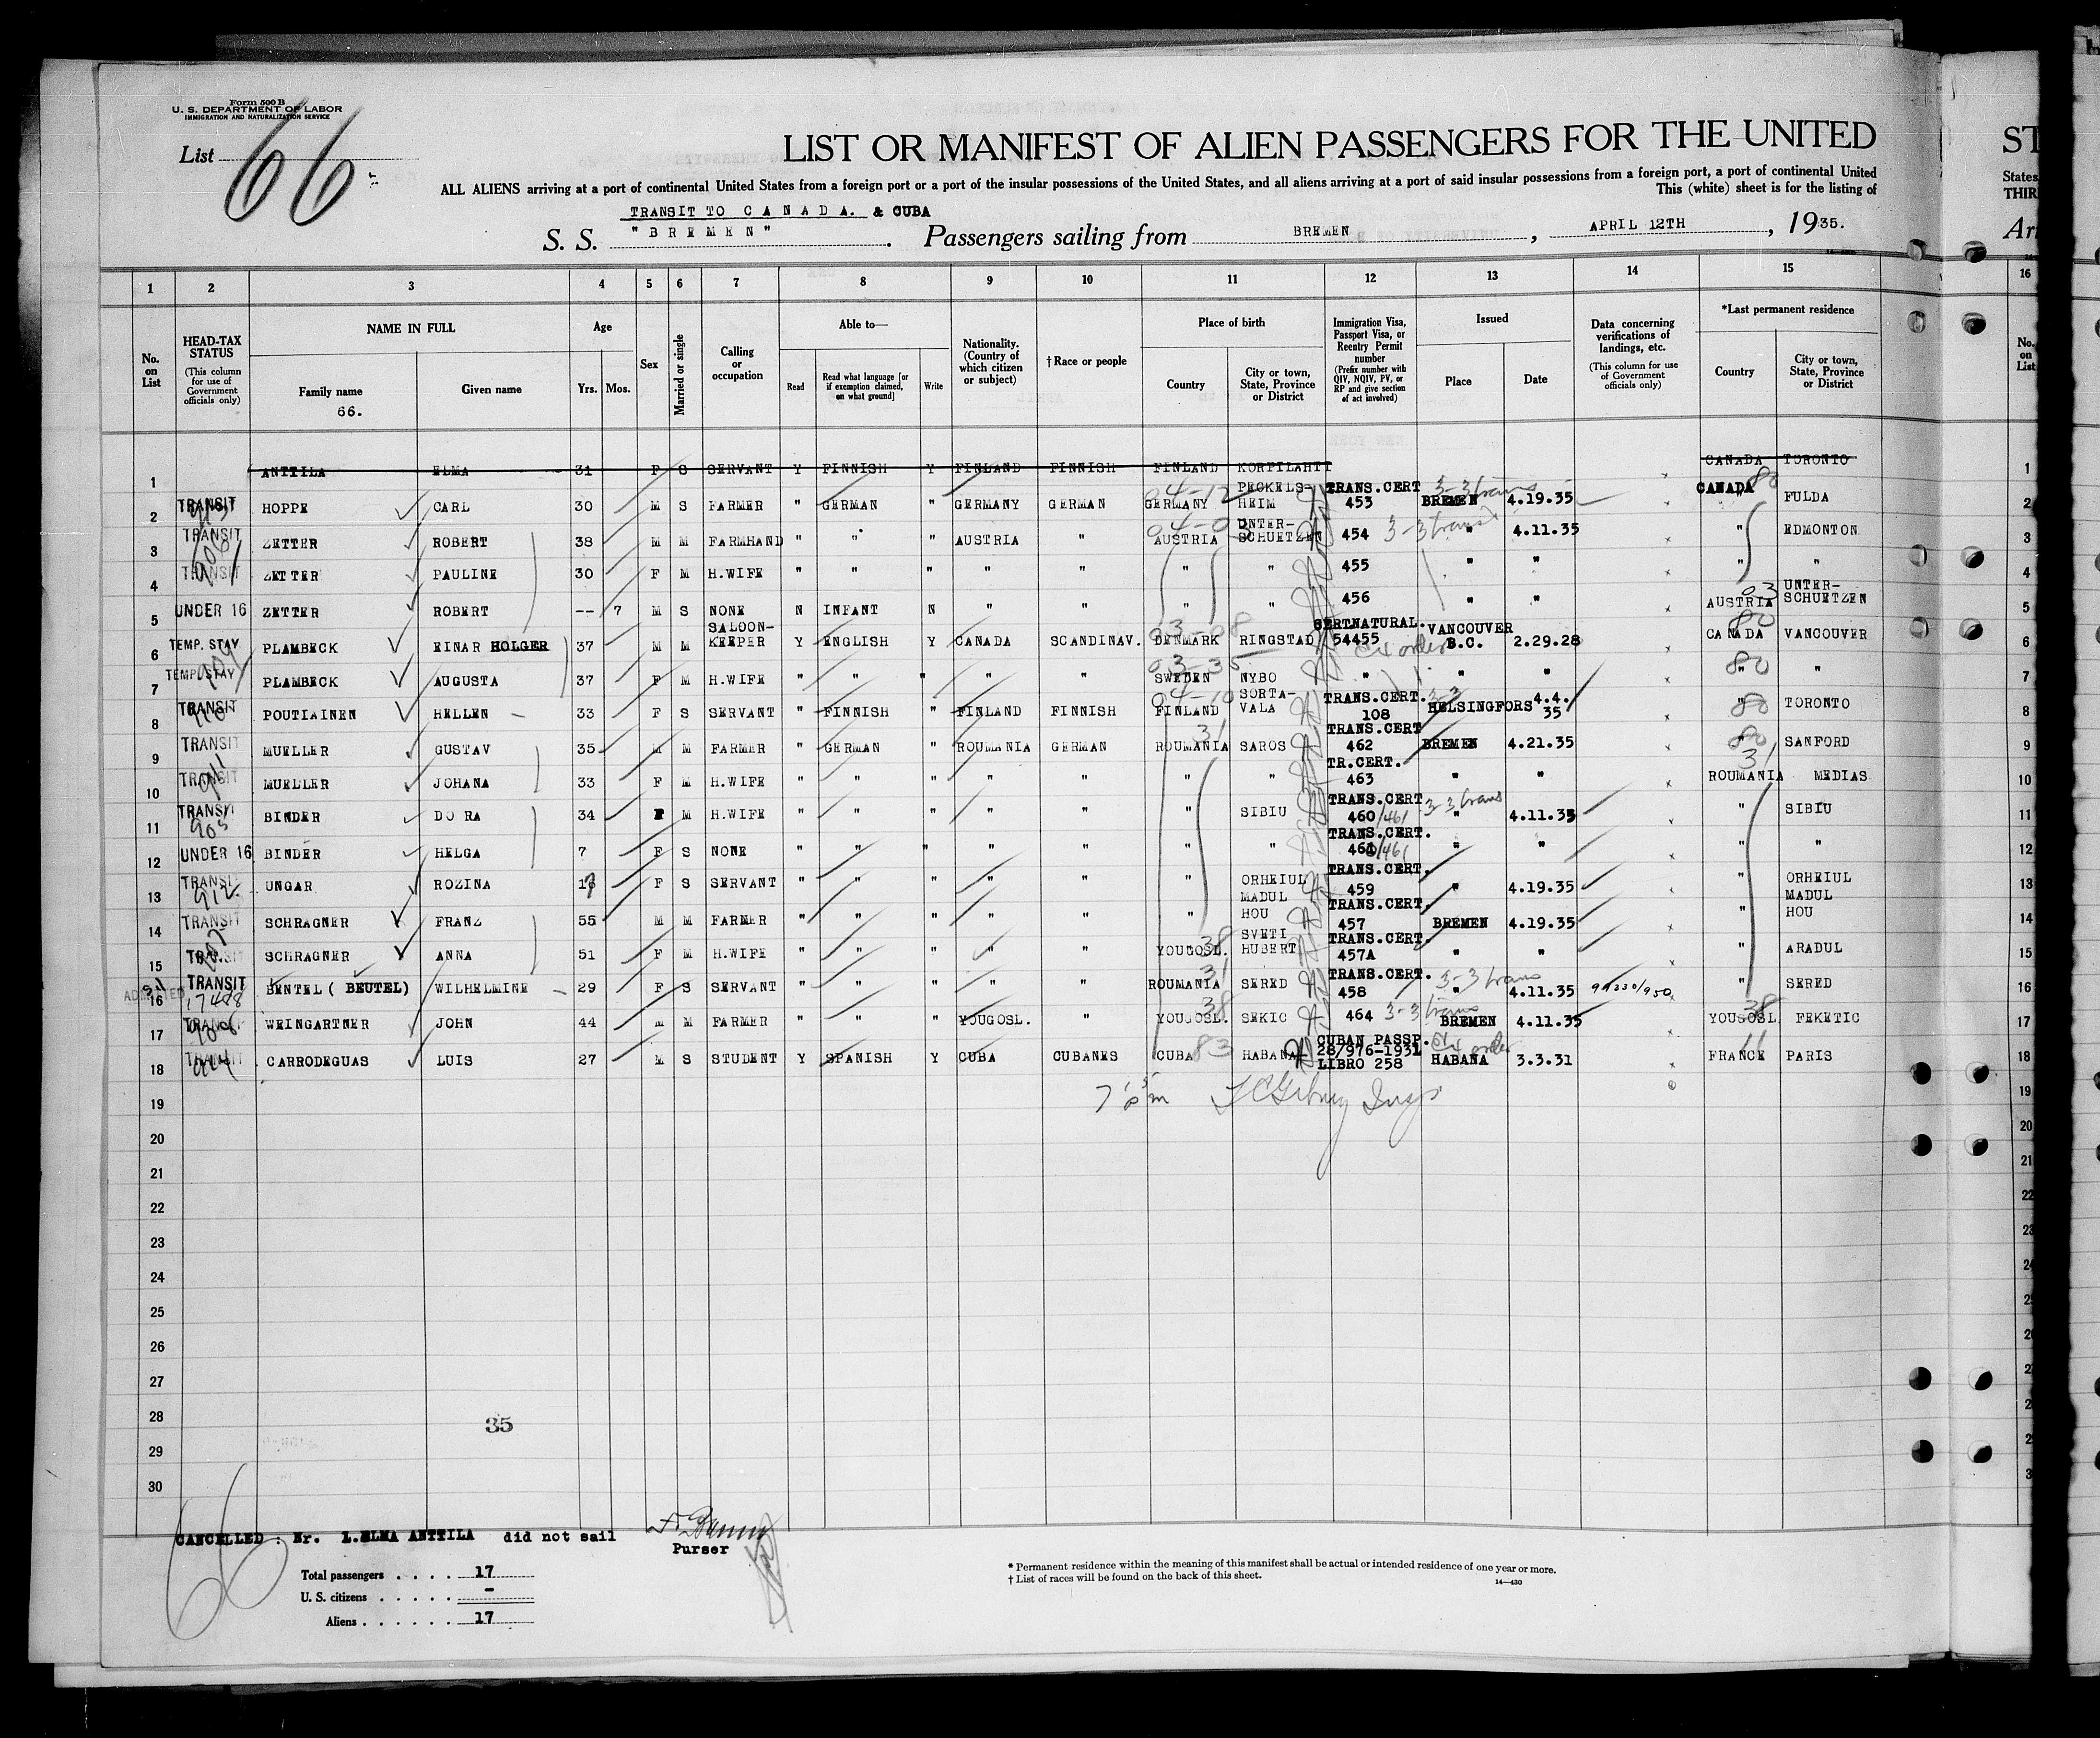 Form 500 B
U. S. DEPARTMENT OF LABOR
IMMIGRATION AND NATURALIZATION SERVICE
List 66
LIST OR MANIFEST OF ALIEN PASSENGERS FOR THE UNITED
ST
ALL ALIENS arriving at a port of continental United States from a foreign port or a port of the insular possessions of the United States, and all aliens arriving at a port of said insular possessions from a foreign port, a port of continental United
States
This (white) sheet is for the listing of
THIR
TRANSIT TO C A N A D A. & CUBA
S. S. " B R E M E N " . Passengers sailing from BREMEN , APRIL 12TH , 19 35.
Ar
1 2 3 4 5 6 7 8 9 10 11 12 13 14 15 16
No. on List
HEAD-TAX STATUS (This column for use of Government officials only)
NAME IN FULL
Family name
66.
Given name
Age
Yrs. Mos.
Sex
Married or single
Calling or occupation
Able to—
Read
Read what language [or if exemption claimed, on what ground]
Write
Nationality. (Country of which citizen or subject)
† Race or people
Place of birth
Country
City or town, State, Province or District
Immigration Visa, Passport Visa, or Reentry Permit number (Prefix number with QIV, NQIV, PV, or RP and give section of act involved)
Issued
Place
Date
Data concerning verifications of landings, etc. (This column for use of Government officials only)
*Last permanent residence
Country
City or town, State, Province or District
No. on List
1 ANTTILA ELMA 31 F S SERVANT Y FINNISH Y FINLAND FINNISH FINLAND KORPILAHTI CANADA TORONTO 1
2 TRANSIT HOPPE CARL 30 M S FARMER " GERMAN " GERMANY GERMAN 04-12 GERMANY PECKELS-HEIM TRANS.CERT 453 3-3 trans BREMEN 4.19.35 CANADA " 80 FULDA 2
3 TRANSIT ZETTER ROBERT 38 M M FARMHAND " " " AUSTRIA " AUSTRIA UNTER-SCHUETZEN 454 3-3 transit " 4.11.35 " EDMONTON 3
4 TRANSIT ZETTER PAULINE 30 F M H.WIFE " " " " " " " 455 " " " " 4
5 UNDER 16 ZETTER ROBERT -- 7 M S NONE N INFANT N " " " " 456 " " AUSTRIA 03 UNTER-SCHUETZEN 5
6 TEMP. STAY PLAMBECK EINAR HOLGER 37 M M SALOON-KEEPER Y ENGLISH Y CANADA SCANDINAV. DENMARK RINGSTAD CERTNATURAL. 54455 Ex order VANCOUVER B.C. 2.29.28 CANADA 80 VANCOUVER 6
7 TEMP. STAY PLAMBECK AUGUSTA 37 F M H.WIFE " " " " " 03-35 SWEDEN NYBO " " " " 80 " 7
8 TRANSIT POUTIAINEN HELLEN 33 F S SERVANT " FINNISH " FINLAND FINNISH 04-10 FINLAND SORTA-VALA TRANS.CERT. 108 3-3 HELSINGFORS 4.4.35 " 80 TORONTO 8
9 TRANSIT MUELLER GUSTAV 35 M M FARMER " GERMAN " ROUMANIA GERMAN 31 ROUMANIA SAROS TRANS.CERT 462 BREMEN 4.21.35 " 80 SANFORD 9
10 TRANSIT 911 MUELLER JOHANA 33 F M H.WIFE " " " " " " " TR.CERT. 463 " " 31 ROUMANIA MEDIAS 10
11 TRANSIT BINDER DORA 34 F M H.WIFE " " " " " " SIBIU TRANS.CERT 460/461 3-3 trans " 4.11.35 " SIBIU 11
12 UNDER 16 BINDER HELGA 7 F S NONE " " " " " " " TRANS.CERT. 461 /461 " " " " 12
13 TRANSIT 912 UNGAR ROZINA 17 F S SERVANT " " " " " " ORHEIUL TRANS.CERT. 459 " 4.19.35 " ORHEIUL 13
14 TRANSIT SCHRAGNER FRANZ 55 M M FARMER " " " " " " MADUL HOU TRANS.CERT. 457 BREMEN 4.19.35 " MADUL HOU 14
15 TRANSIT SCHRAGNER ANNA 51 F M H.WIFE " " " " " 38 YOUGOSL. SVETI HUBERT TRANS.CERT. 457A " " " ARADUL 15
16 ADMITTED TRANSIT BENTEL ( BEUTEL) WILHELMINE 29 F S SERVANT " " " " " 31 ROUMANIA SERED TRANS.CERT. 458 3-3 trans " 4.11.35 99330/950 " SERED 16
17 TRANSIT WEINGARTNER JOHN 44 M M FARMER " " " YOUGOSL. " 38 YOUGOSL. SEKIC 464 3-3 trans BREMEN 4.11.35 38 YOUGOSL FEKETIC 17
18 TRANSIT CARRODEGUAS LUIS 27 M S STUDENT Y SPANISH Y CUBA CUBANES CUBA 83 HABANA CUBAN PASSP. 28/976-1931 LIBRO 258 Ex order HABANA 3.3.31 11 FRANCE PARIS 18
19 19
20 20
21 21
22 22
23 23
24 24
25
26
27
28
29
30
35
66
CANCELLED : Nr. 1.ELMA ANTTILA did not sail
Purser
Total passengers . . . . 17
U. S. citizens . . . . . -
Aliens . . . . . . 17
* Permanent residence within the meaning of this manifest shall be actual or intended residence of one year or more.
† List of races will be found on the back of this sheet.
14—430